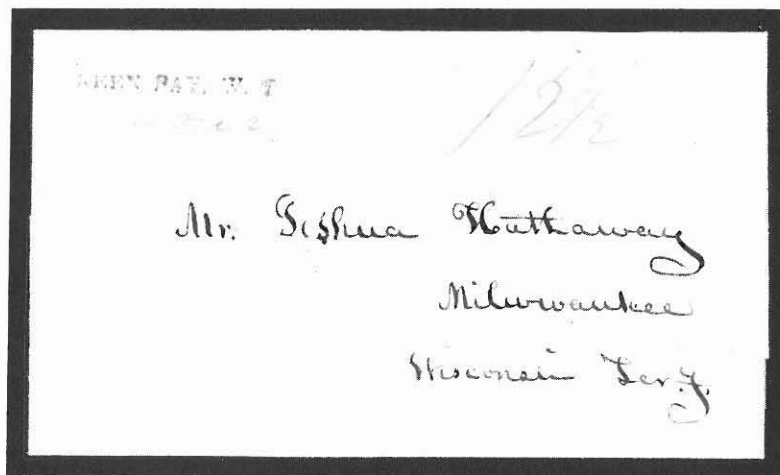 REEN BAY, W. T
Dec 2
12½
Mr. Joshua Hathaway
Milwwaukee
Wisconsin Ter.y.